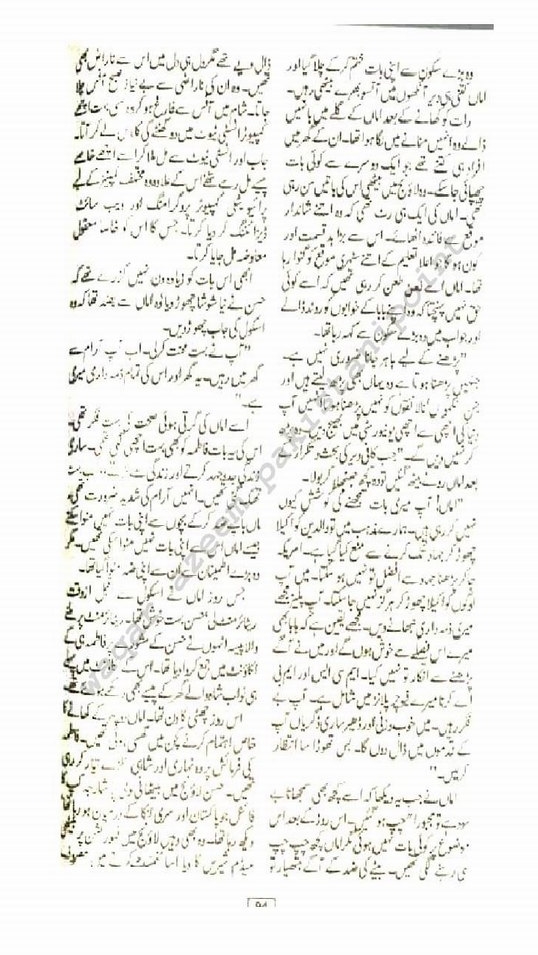 وہ بڑے سکون سے اپنی بات ختم کر کے چلا گیا اور
اماں کتنی ہی دیر آنکھوں میں آنسو بھرے بیٹھی رہیں۔
رات کو کھانے کے بعد اماں کے گلے میں بانہیں
ڈالے وہ انہیں منانے میں لگا ہوا تھا۔ ان کے گھر میں
افراد ہی کتنے تھے جو ایک دوسرے سے کوئی بات
چھپائی جا سکے۔ وہ لاؤنج میں بیٹھی اس کی باتیں سن رہی
تھی۔ اماں کی ایک ہی رٹ تھی کہ وہ اتنے شاندار
موقع سے فائدہ اٹھائے۔ اس سے بڑا بد قسمت اور
کون ہو گا جو اعلا تعلیم کے اتنے سنہری موقع کو گنوا رہا
تھا۔ اماں اسے لعن طعن کر رہی تھیں کہ اسے کوئی
حق نہیں پہنچتا کہ وہ اپنے بابا کے خوابوں کو روند ڈالے
اور جواب میں وہ بڑے سکون سے کہہ رہا تھا۔
"پڑھنے کے لیے باہر جانا ضروری نہیں ہے۔
جنہیں پڑھنا ہوتا ہے وہ یہاں بھی پڑھ لیتے ہیں اور
جن نالائقوں کو نہیں پڑھنا ہوتا انہیں آپ
دنیا کی اچھی سے اچھی یونیورسٹی میں بھیج دیں وہ
کر نہیں دیں گے۔" جب کافی دیر کی بحث و تکرار کے
بعد اماں رونے بیٹھ گئیں تو وہ کچھ جھنجھلا کر بولا۔
"اماں! آپ میری بات سمجھنے کی کوشش کیوں
نہیں کر رہی ہیں۔ ہمارے مذہب میں تو والدین کو اکیلا
چھوڑ کر جہاد تک کرنے سے منع کیا گیا ہے۔ امریکہ
جا کر پڑھنا جہاد سے افضل تو نہیں ہو سکتا۔ میں آپ
لوگوں کو اکیلا چھوڑ کر ہرگز نہیں جا سکتا۔ آپ پلیز مجھے
میری ذمہ داری نبھانے دیں۔ مجھے یقین ہے کہ بابا بھی
میرے اس فیصلے سے خوش ہوں گے اور میں نے آگے
پڑھنے سے انکار تو نہیں کیا۔ ایم سی ایس اور ایم بی
اے کرنا میرے فیوچر پلانز میں شامل ہے۔ آپ بے
فکر رہیں۔ میں خوب وزنی اور ڈھیر ساری ڈگریاں آپ
کے قدموں میں ڈال دوں گا۔ بس تھوڑا سا انتظار
کریں۔"
اماں نے جب یہ دیکھا کہ اسے کچھ بھی سمجھانا بے
سود ہے تو مجبوراً چپ ہو گئیں۔ اس روز کے بعد اس
موضوع پر کوئی بات نہیں ہوئی مگر اماں کچھ چپ چپ
سی رہنے لگی تھیں۔ بیٹے کی ضد کے آگے ہتھیار تو
ڈال دیے تھے مگر دل ہی دل میں اس سے ناراض بھی
تھیں۔ وہ ان کی ناراضی سے بے نیاز صبح آفس چلا
جاتا۔ شام میں آفس سے فارغ ہو کر وہ بہت اچھے
کمپیوٹر انسٹی ٹیوٹ میں دو گھنٹے کی کلاس لے کر آتا۔
جاب اور انسٹی ٹیوٹ سے مل ملا کر اسے اچھے خاصے
پیسے مل رہے تھے اس کے علاوہ وہ مختلف کمپنیز کے لیے
پرائیویٹلی کمپیوٹر پروگرامنگ اور ویب سائٹ
ڈیزائننگ کر دیا کرتا۔ جس کا اس کو خاصا معقول
معاوضہ مل جایا کرتا۔
ابھی اس بات کو زیادہ دن نہیں گزرے تھے کہ
حسن نے نیا شوشا چھوڑ دیا وہ اماں سے بضد تھا کہ وہ
اسکول کی جاب چھوڑ دیں۔
"آپ نے بہت محنت کر لی۔ اب آپ آرام سے
گھر میں رہیں۔ یہ گھر اور اس کی تمام ذمہ داری میری
ہے۔"
اسے اماں کی گرتی ہوئی صحت کی بہت فکر تھی۔
اس کی یہ بات فاطمہ کو بھی بہت اچھی لگی تھی۔ ساری
زندگی جدوجہد کرتے اور زندگی سے
تھیں۔ انہیں آرام کی شدید ضرورت تھی
ماں باپ بچوں سے اپنی بات نہیں منوا سکتے
جیسے اماں اس سے اپنی بات نہیں منوا سکی تھیں۔ مگر
وہ بڑے اطمینان سے ان سے اپنی ضد منوا گیا تھا۔
جس روز اماں نے اسکول سے قبل از وقت
ریٹائرمنٹ لی حسن بہت خوش تھا۔ ریٹائرمنٹ پر ملنے
والا پیسہ انہوں نے حسن کے فاطمہ ہی کے
اکاؤنٹ میں جمع کروا دیا تھا۔ اس کے اکاؤنٹ میں پہلے
ہی نواب شاہ والے گھر کے پیسے بھی رکھے
اس روز چھٹی کا دن تھا۔ اماں دوپہر کے کھانے کا
خاص اہتمام کرنے کچن میں گھسی ہوئی تھیں۔ فاطمہ
کی فرمائش پر وہ نہاری اور شاہی ٹکڑے تیار کر رہی
تھیں۔ حسن لاؤنج میں بیٹھا ٹی وی پر شارجہ کپ کا
فائنل جو پاکستان اور سری لنکا کے درمیان ہو رہا تھا
دیکھ رہا تھا۔ وہ بھی وہیں لاؤنج میں فلور کشن پر بیٹھی
میڈم شیریں کا دیا اسائنمنٹ کرنے میں مصروف
94
waqar azeem pakistanipoint